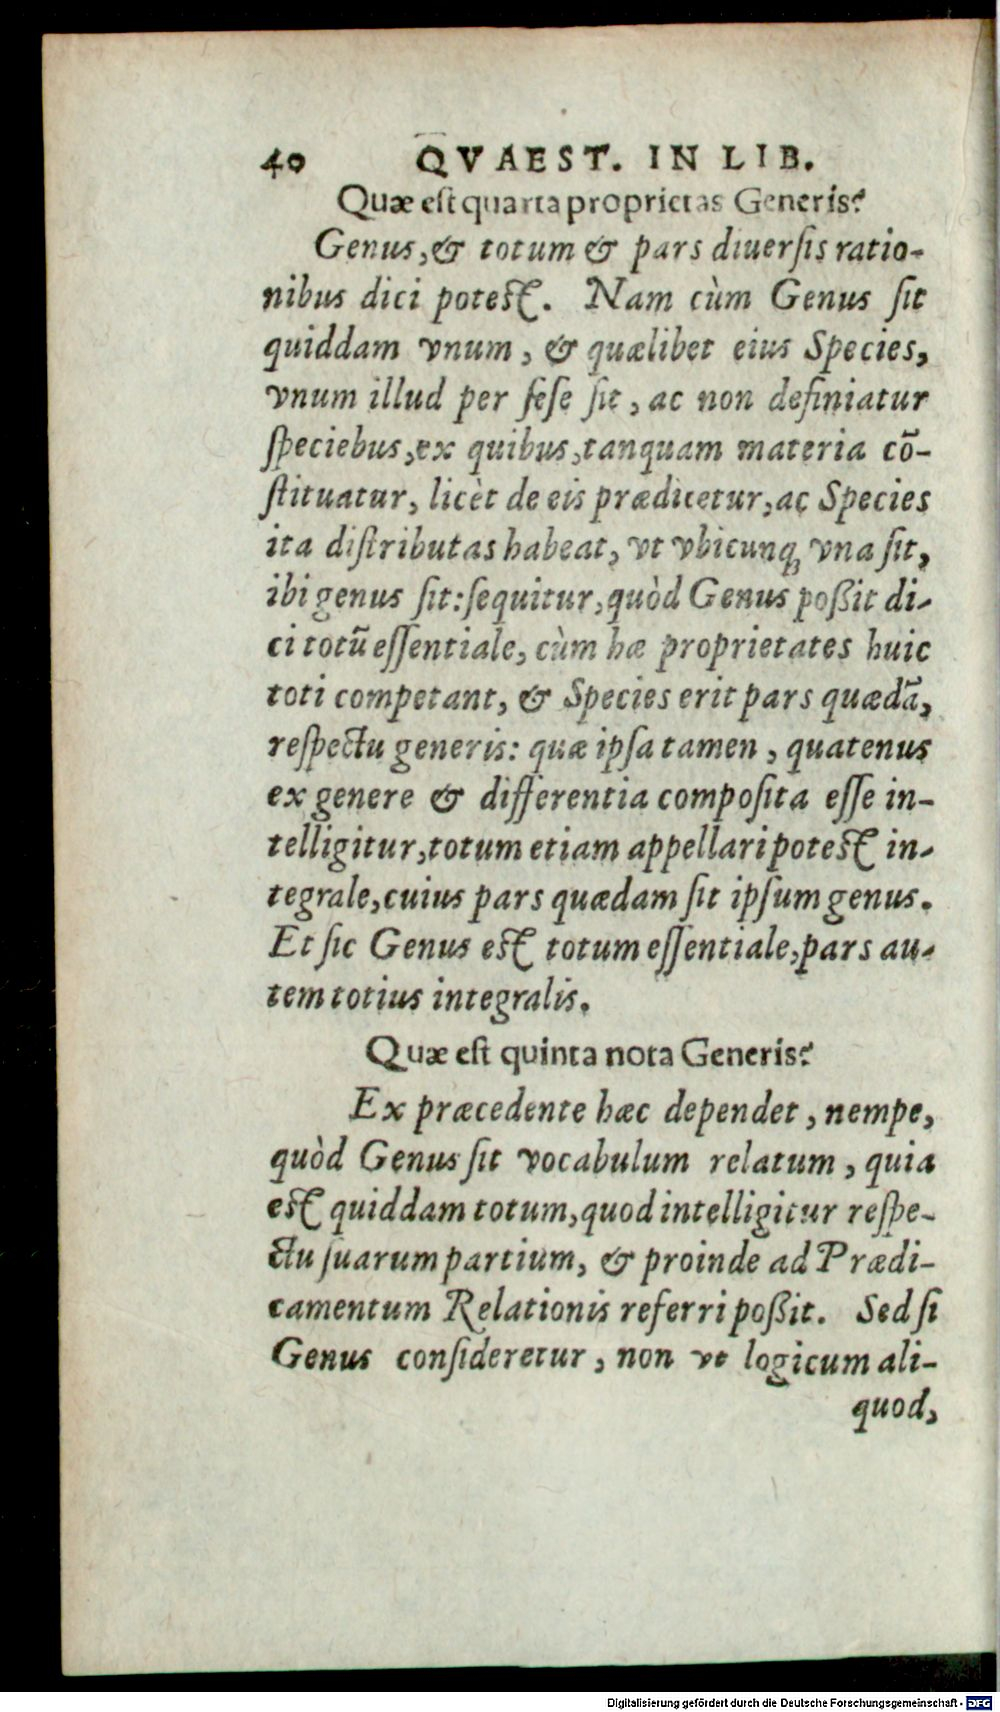 40 QVAEST. IN LIB.
Quæ eſt quarta proprietas Generis?
Genus, & totum & pars diuerſis ratio-
nibus dici poteſt. Nam cùm Genus ſit
quiddam vnum, & quælibet eius Species,
vnum illud per ſeſe ſit, ac non definiatur
ſpeciebus, ex quibus, tanquam materia cō-
ſtituatur, licèt de eis prædicetur, ac Species
ita diſtributas habeat, vt vbicunq; vna ſit,
ibi genus ſit: ſequitur, quòd Genus poßit di-
ci totū eſſentiale, cùm hæ proprietates huic
toti competant, & Species erit pars quædā,
reſpectu generis: quæ ipſa tamen, quatenus
ex genere & differentia compoſita eſſe in-
telligitur, totum etiam appellari poteſt in-
tegrale, cuius pars quædam ſit ipſum genus.
Et ſic Genus eſt totum eſſentiale, pars au-
tem totius integralis.
Quæ eſt quinta nota Generis?
Ex præcedente hæc dependet, nempe,
quòd Genus ſit vocabulum relatum, quia
eſt quiddam totum, quod intelligitur reſpe-
ctu ſuarum partium, & proinde ad Prædi-
camentum Relationis referri poßit. Sed ſi
Genus conſideretur, non vt logicum ali-
quod,
Digitalisierung gefördert durch die Deutsche Forschungsgemeinschaft - DFG